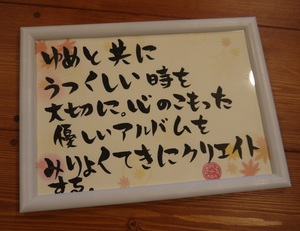 ゆめと共に
うつくしい時を
大切に。心のこもった
優しいアルバムを
みりょくてきにクリエイト
する。